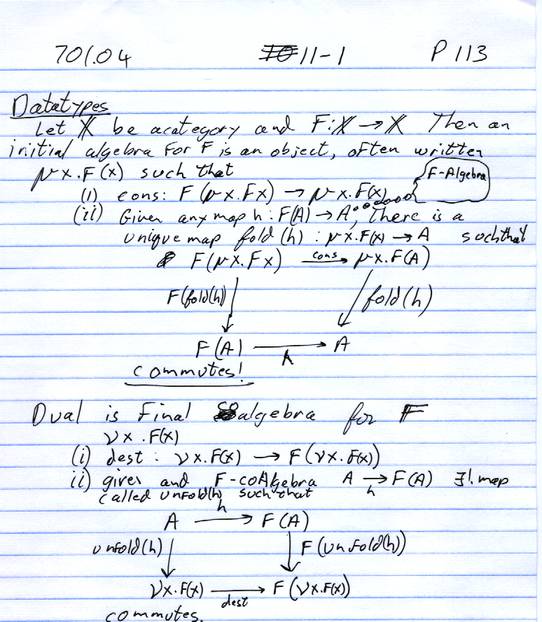 701.04 11-1 P 113
Datatypes
Let 𝕏 be a category and F: 𝕏 → 𝕏 Then an
initial algebra for F is an object, often written
μx.F(x) such that
(i) cons: F(μx.Fx) → μx.F(x)
F-Algebra
(ii) Given any map h: F(A) → A, there is a
unique map fold(h): μx.F(x) → A such that
F(μx.Fx) cons→ μx.F(A)
F(fold(h)) ↓ ↓ fold(h)
F(A) → A
h
commutes!
Dual is Final algebra for F
νx.F(x)
(i) dest: νx.F(x) → F(νx.F(x))
ii) given and F-coAlgebra A →h F(A) ∃!.map
called unfold(h) such that
h
A → F(A)
unfold(h) ↓ ↓ F(unfold(h))
νx.F(x) → F(νx.F(x))
dest
commutes.